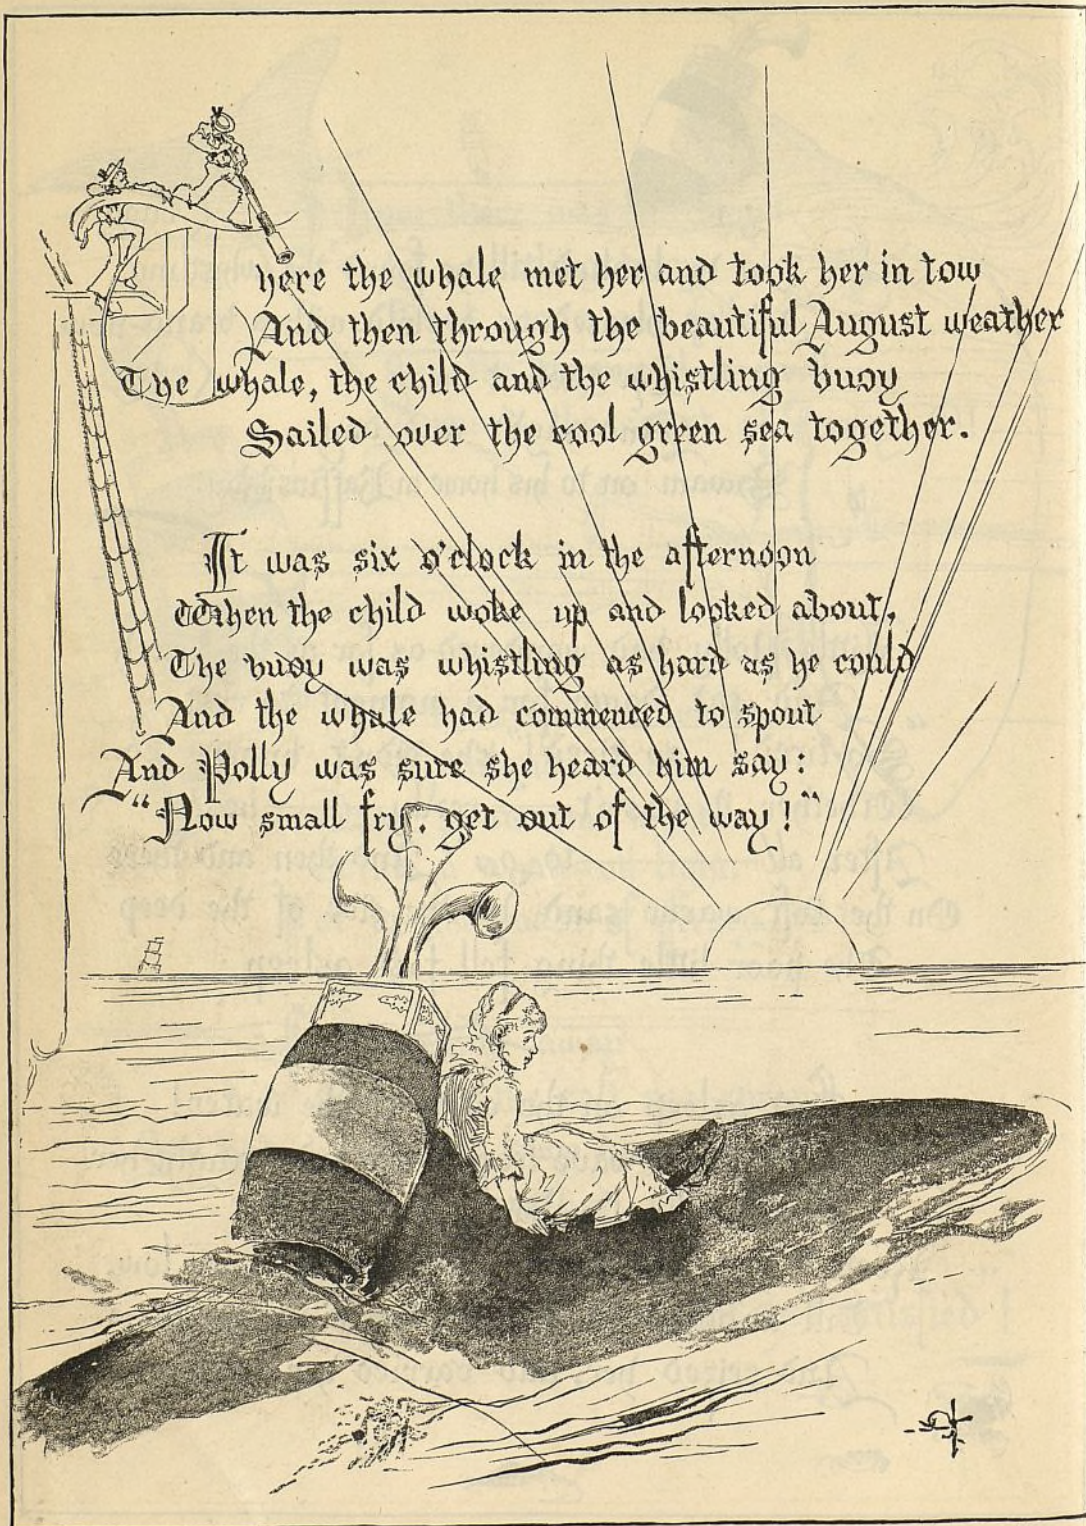 There the whale met her and took her in tow
And then through the beautiful August weather
The whale, the child and the whistling buoy
Sailed over the cool green sea together.
It was six o'clock in the afternoon
When the child woke up and looked about,
The buoy was whistling as hard as he could
And the whale had commenced to spout
And Polly was sure she heard him say:
"Now small fry, get out of the way!"